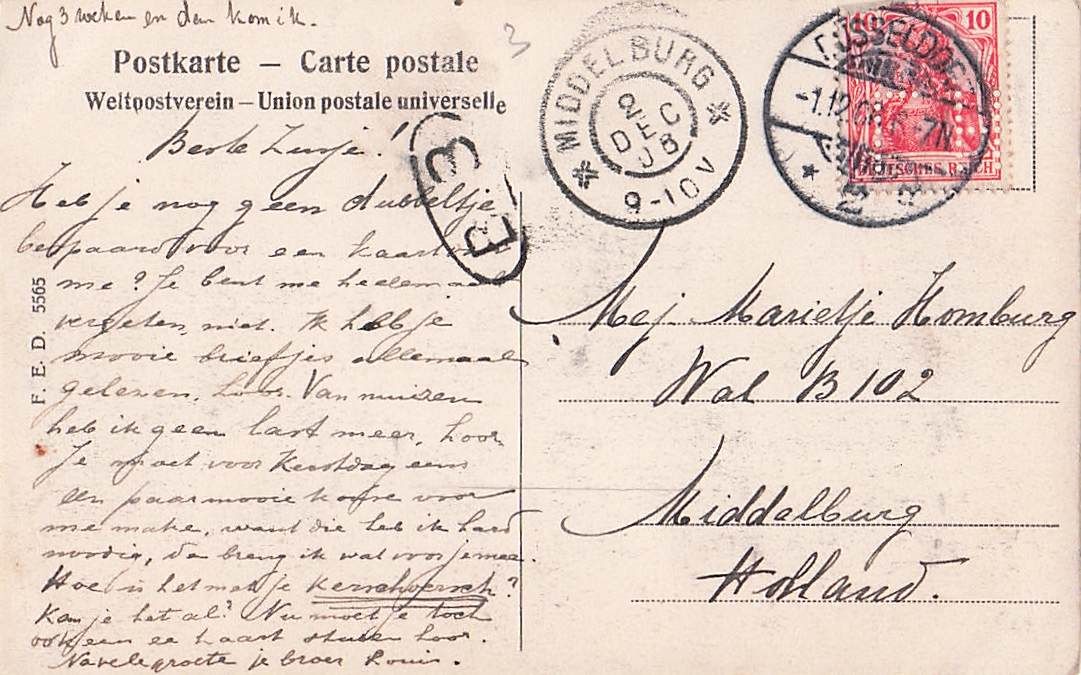 Nog 3 weken en dan kom ik.
3
Postkarte – Carte postale
Weltpostverein – Union postale universelle
Beste Zusje!
Heb je nog geen dubbeltje
bespaard voor een kaart
me? Je bent me heelemaal
vergeten, niet. Ik heb je
mooie briefjes allemaal
gelezen, hoor. Van muizen
heb ik geen last meer, hoor
Je moet voor Kerstdag eens
een paar mooie voor
me make, want die heb ik hard
noodig, dan breng ik wat voor je mee.
Hoe is het met je kerschversch?
Kan je het al? Nu moet je toch
ook een ee kaart sturen hoor.
Na vele groete je broer Louis.
F. E. D. 5565
E 3
MIDDELBURG
2
DEC
08
9-10V
DÜSSELDORF
-1.12.08. 6-7N
2
10 10
DEUTSCHES REICH
Mej Marietje Homburg
Wal B 102
Middelburg
Holland.